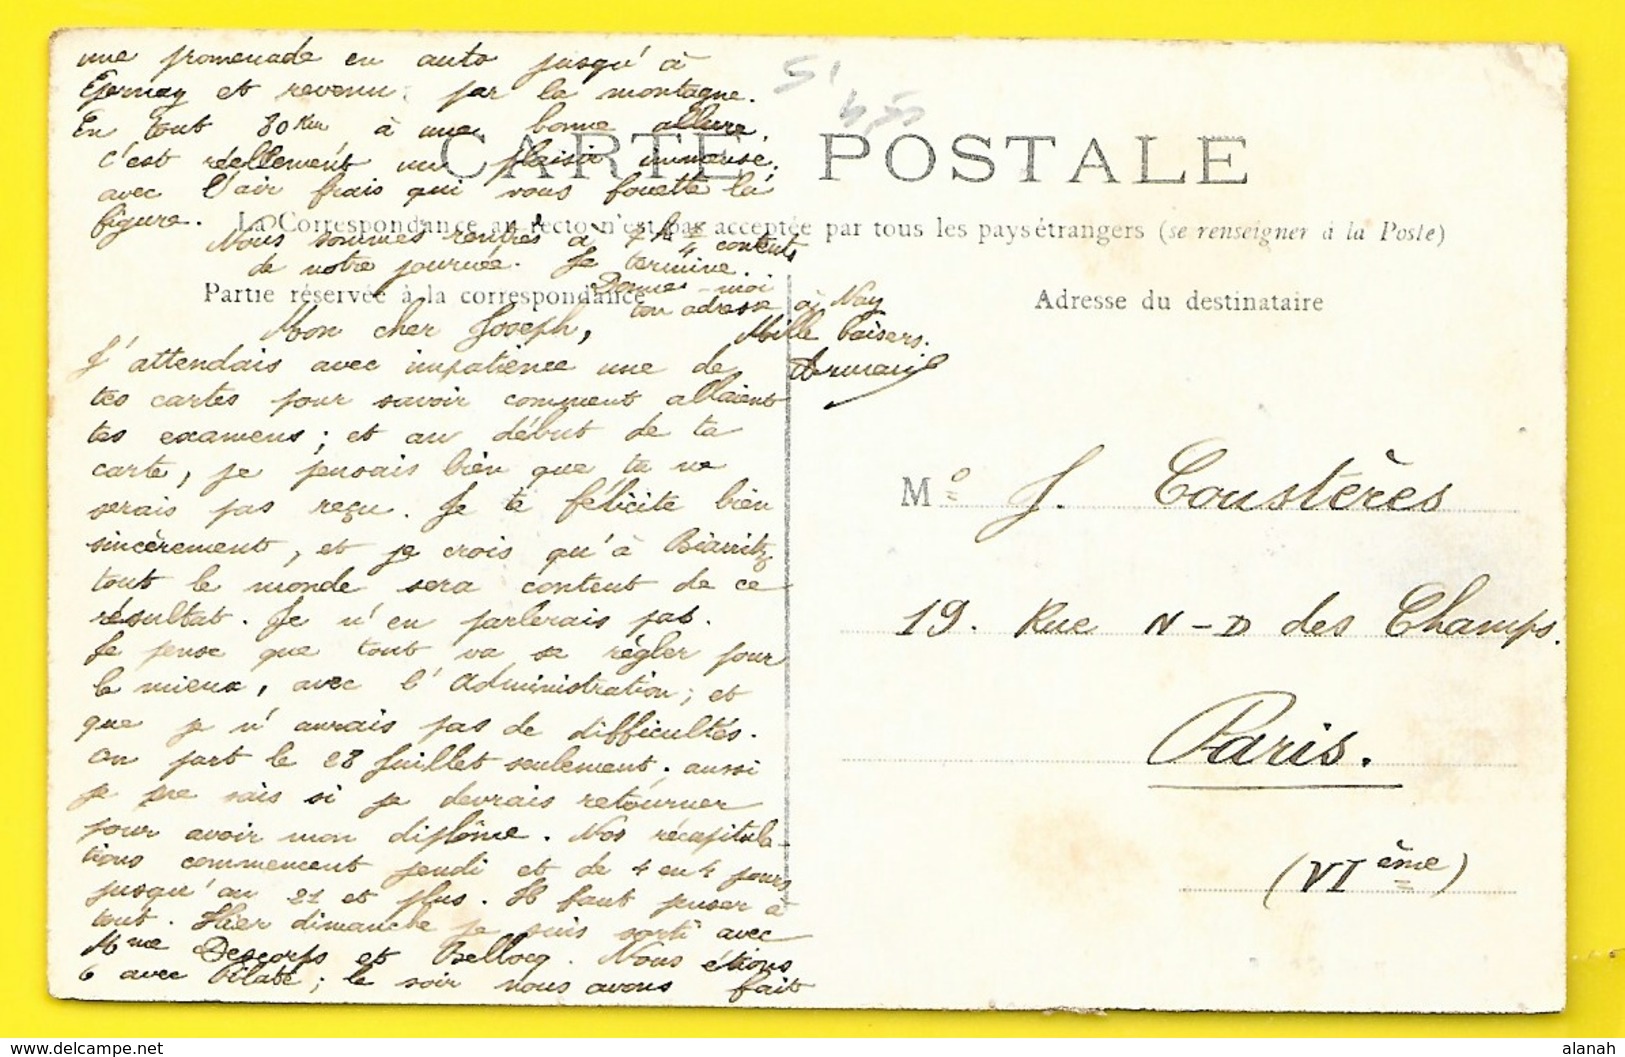 une promenade en auto jusqu'à
Epernay et revenu par la montagne.
En tout 80 Km à une bonne allure,
c'est réellement un plaisir immense,
avec l'air frais qui vous fouette la
figure.
Nous sommes rentrés à 7h 3/4 contents
de notre journée. Je termine.
Donnes-moi
ton adresse à Nay
Mille baisers.
CARTE POSTALE
La Correspondance au recto n'est pas acceptée par tous les pays étrangers (se renseigner à la Poste)
Partie réservée à la correspondance
Adresse du destinataire
Mon cher Joseph,
J'attendais avec impatience une de
tes cartes pour savoir comment allaient
tes examens; et au début de ta
carte, je pensais bien que tu ne
serais pas reçu. Je te félicite bien
sincèrement, et je crois qu'à Biarritz
tout le monde sera content de ce
résultat. Je n'en parlerais pas.
Je pense que tout va se règler pour
le mieux, avec l'Administration; et
que je n'aurais pas de difficultés.
On part le 28 Juillet seulement; aussi
je ne sais si je devrais retourner
pour avoir mon diplôme. Nos récapitula-
tions commencent jeudi et de 4 en 4 jours
jusqu'au 21 et plus. Il faut penser à
tout. Hier dimanche je suis sorti avec
Mme Descorps et Bellocq. Nous étions
6 avec ; le soir nous avons fait
Mr J. Coustères
19. Rue N-D des Champs.
Paris.
(VI ème)
alanah